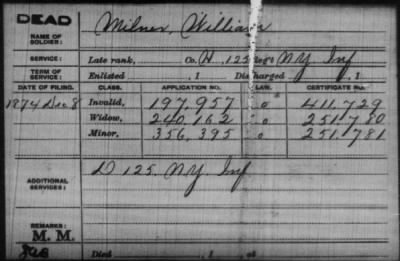 DEAD
NAME OF SOLDIER: Milner, William
SERVICE: Late rank, Co. H, 125 Reg't NY Inf
TERM OF SERVICE: Enlisted , 1 Discharged , 1
DATE OF FILING. CLASS. APPLICATION NO. LAW. CERTIFICATE NO.
1874 Dec 8 Invalid, 197,957 411,729
Widow, 240,162 251,780
Minor, 356,395 251,781
ADDITIONAL SERVICES: D 125 NY Inf
REMARKS:
M. M.
Died , 1 , at